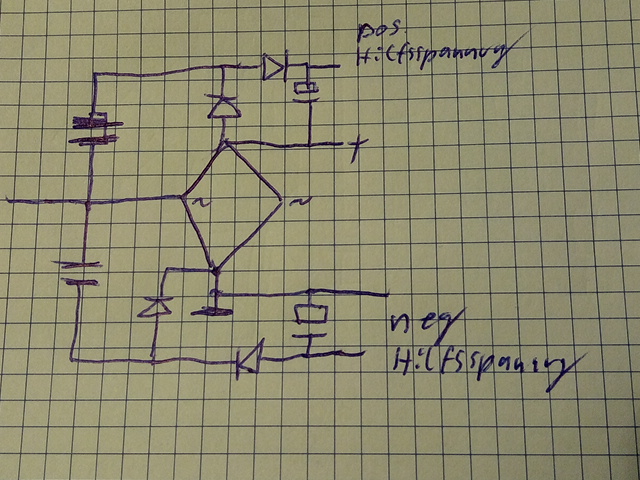 pos
Hilfsspannung
+
~ ~
neg
Hilfsspannung